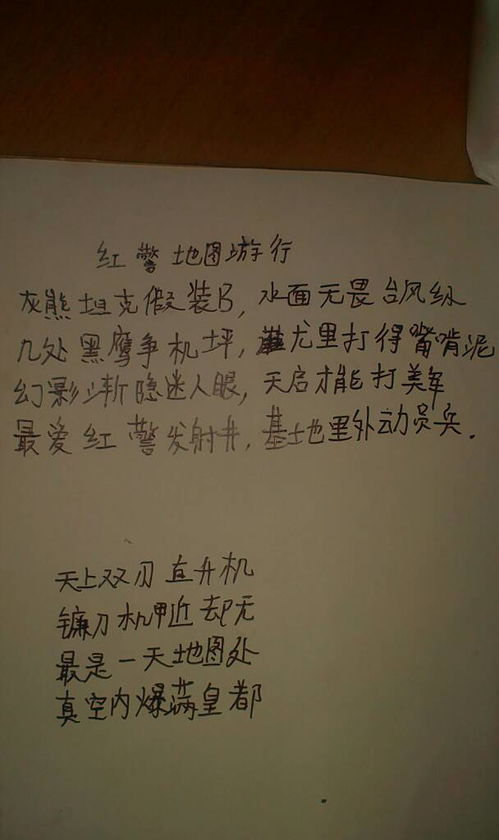 红警地图游行
灰熊坦克假装B，水面无畏台风级
几处黑鹰争机坪，尤里打得嘴啃泥
幻影渐隐迷人眼，天启才能打美军
最爱红警发射井，基地里外动员兵．
天上双刃直升机
镰刀机甲近却无
最是一天地图处
真空内爆满皇都